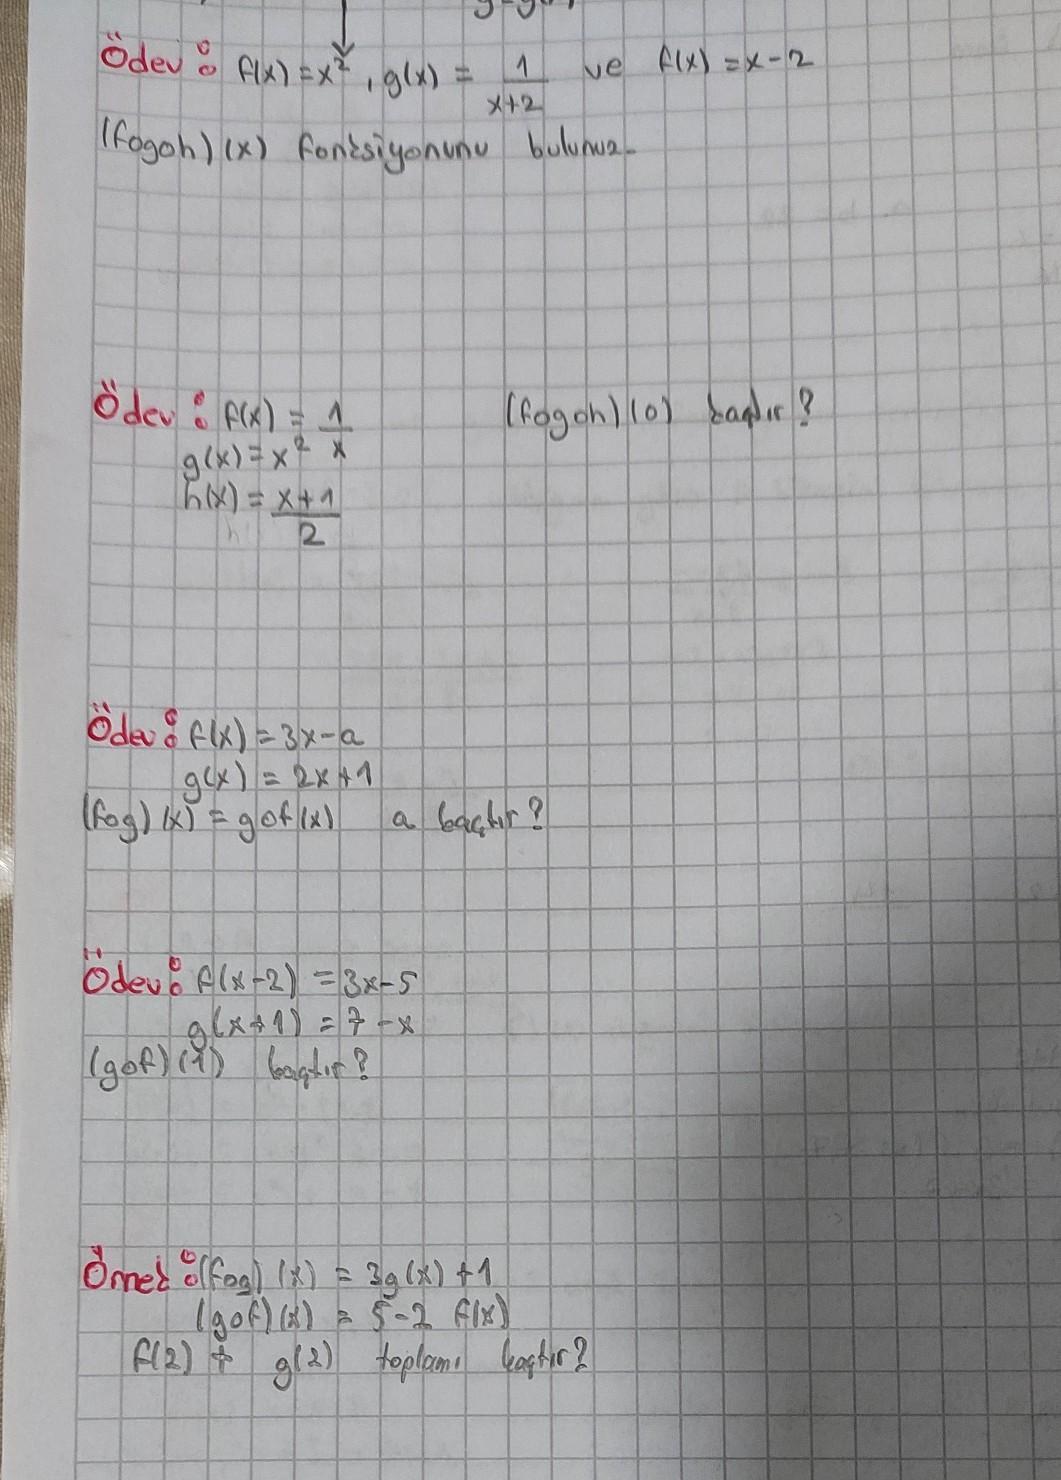 Ödev: f(x)=x², g(x) = 1/(x+2) ve f(x) = x-2
(fogoh)(x) fonksiyonunu bulunuz.
Ödev: f(x) = 1/x (fogoh)(0) kaçtır?
g(x)=x²
h(x) = (x+1)/2
Ödev: f(x) = 3x-a
g(x) = 2x+1
(fog)(x) = gof(x) a kaçtır?
Ödev: f(x-2) = 3x-5
g(x+1) = 7-x
(gof)(1) kaçtır?
Örnek: (fog)(x) = 3g(x)+1
(gof)(x) = 5-2 f(x)
f(2) + g(2) toplamı kaçtır?